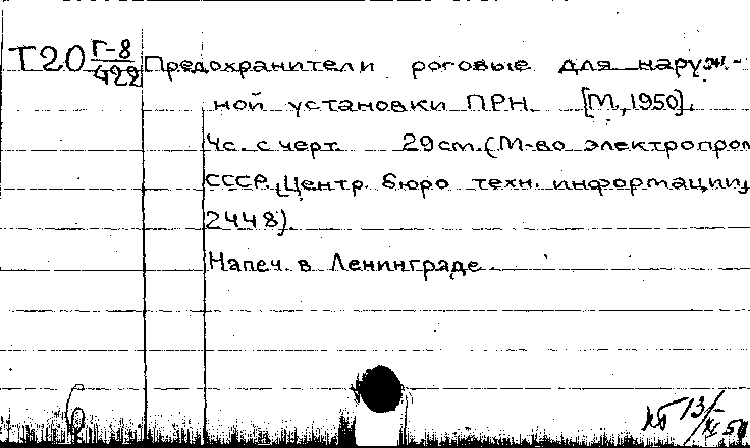 Т20 Г-8/422 Предохранители роговые для наруж-
ной установки ПРН. [М., 1950].
4с. с черт. 29cm. (М-во электропром
СССР. Центр. бюро техн. информации,
2448).
Напеч. в Ленинграде.
б